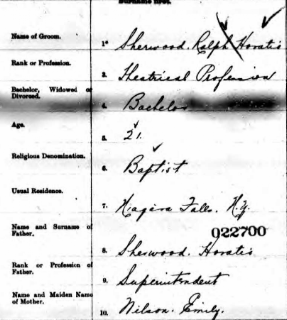 Surname first.
Name of Groom. 1. Sherwood Ralph Horatio
Rank or Profession. 2. Theatrical Profession
Bachelor, Widowed or Divorced. 4. Bachelor
Age. 5. 21
Religious Denomination. 6. Baptist
Usual Residence. 7. Niagara Falls, N.Y.
022700
Name and Surname of Father. 8. Sherwood. Horatio
Rank or Profession of Father. 9. Superintendent
Name and Maiden Name of Mother. 10. Wilson. Emily.